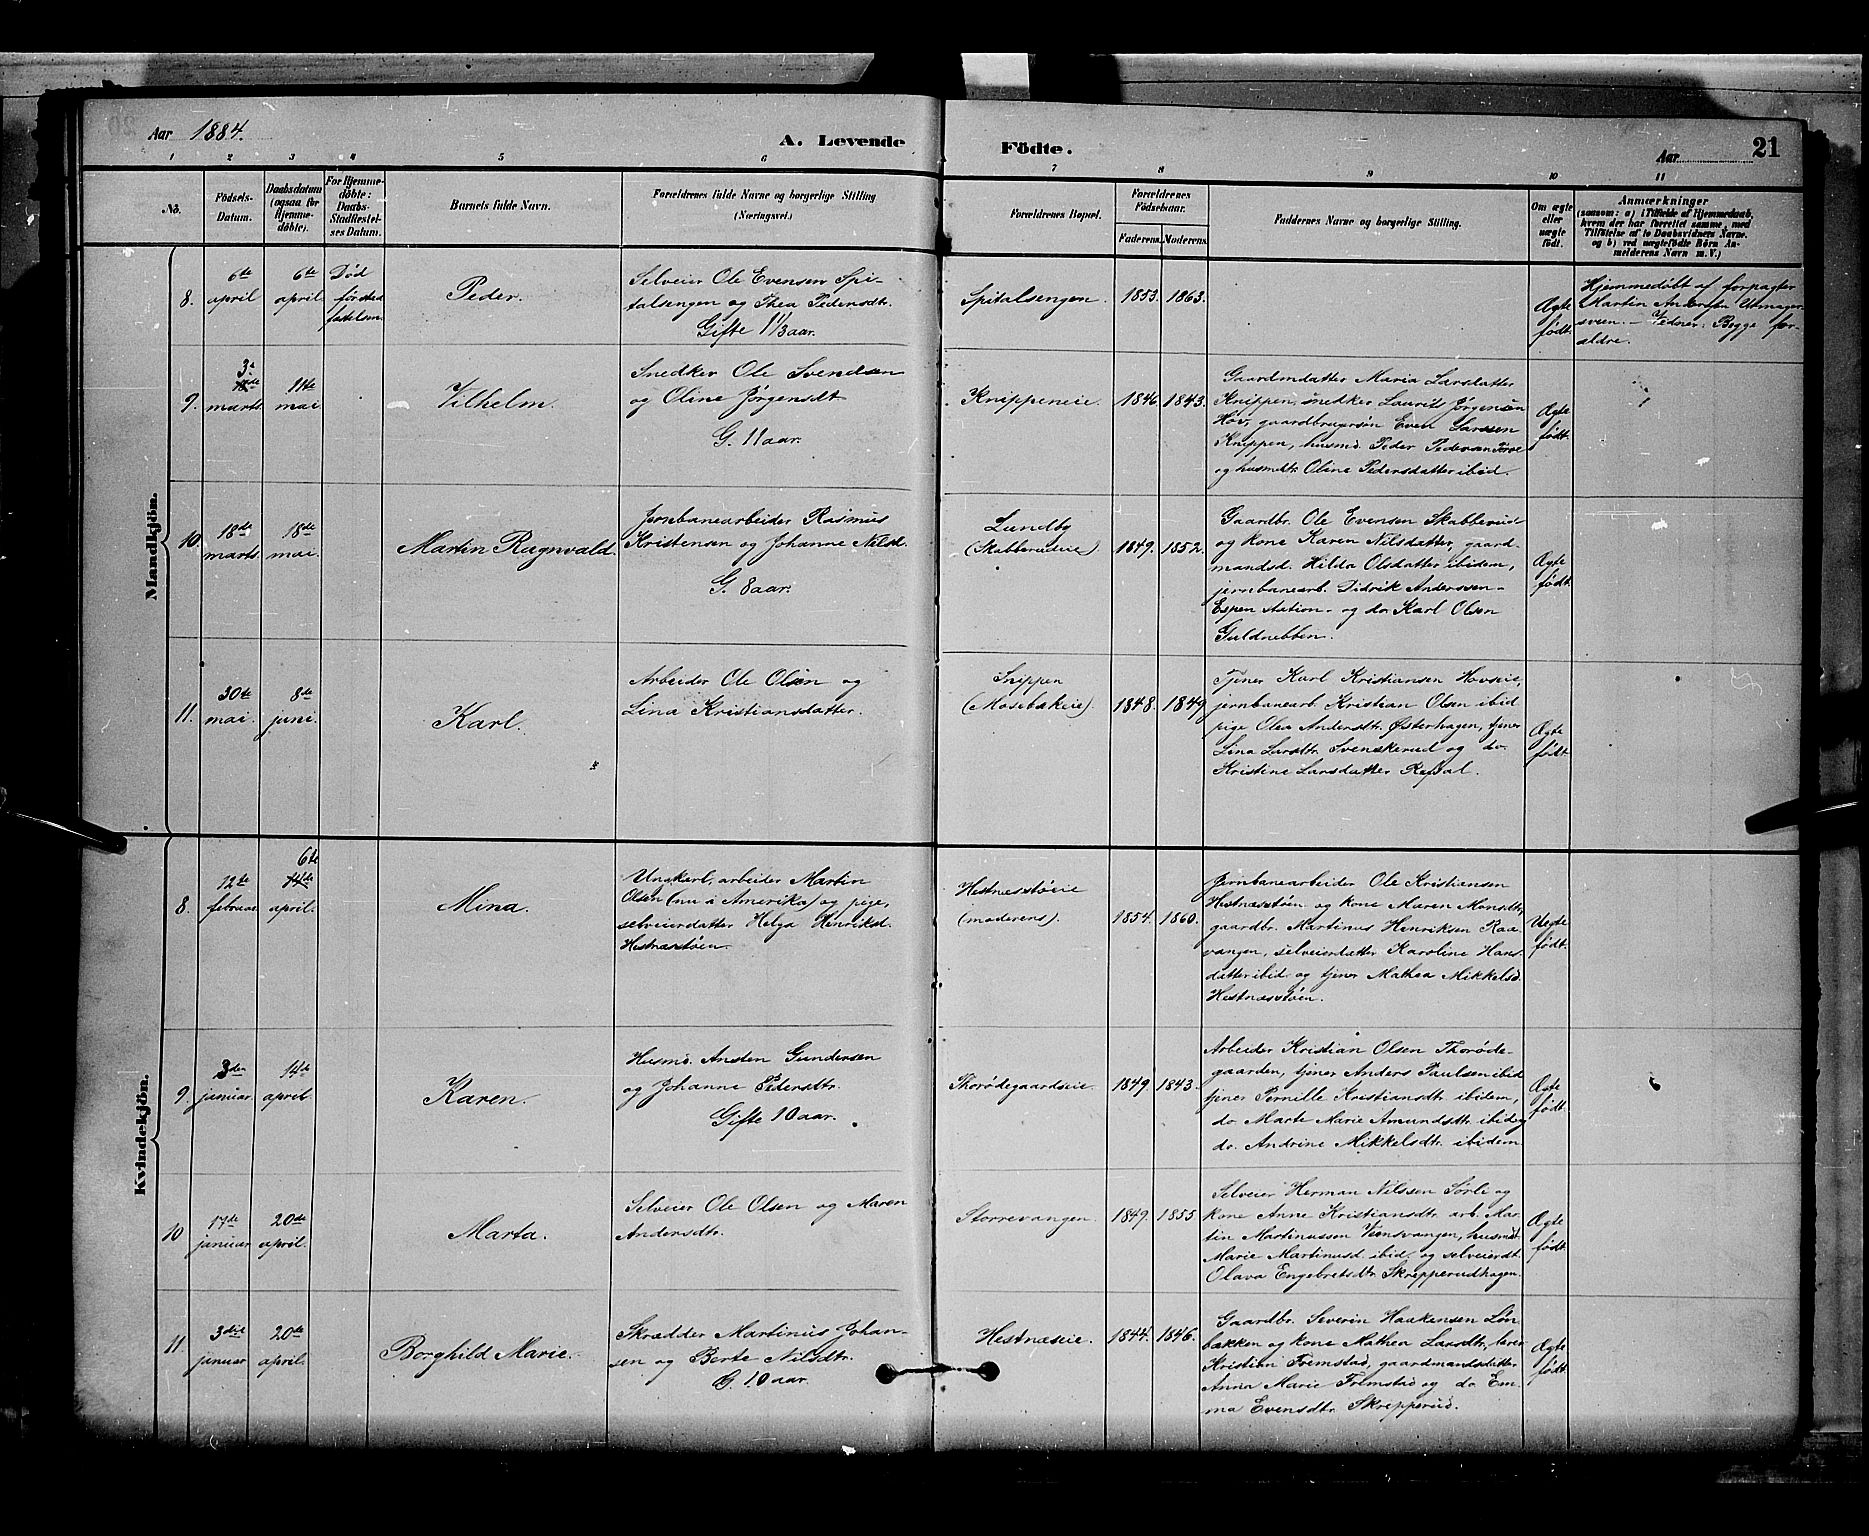 Aar 1884.
A. Levende
Födte.
Aar
21
1 2 3 4 5 6 7 8 9 10 11
No.
Födsels-Datum.
Daabsdatum (ogsaa for Hjemme-döbte).
For Hjemme-döbte: Daabs-Stadfæstel-ses Datum.
Barnets fulde Navn.
Forældrenes fulde Navne og borgerlige Stilling (Næringsvei.)
Forældrenes Bopæl.
Forældrenes Födselsaar.
Faderens.
Moderens.
Faddernes Navne og borgerlige Stilling.
Om ægte eller uægte födt.
Anmærkninger
(saasom: a) i Tilfælde af Hjemmedaab, hvem der har forrettet samme, med Tilföielse af to Daabsvidners Navne. og b) ved uægtefödte Börn Anmelderens Navn m.V.)
Mandkjön.
8.
6te april
6te april
Död
før sted-
fæstelsen
Peder.
Selveier Ole Evensen Spi-
talsengen og Thea Pedersdt.
Gifte 1 1/3 aar.
Spitalsengen.
1853. 1863.
Ægte
født.
Hjemmedøbt af forpagter
Martin Andersen Utmager-
sveen. – Vidner: Begge for-
ældre.
9.
3.
marts
11te
mai
Vilhelm.
Snedker Ole Svendsen
og Oline Jørgensdt.
G. 11 aar.
Knippeneie.
1846. 1843.
Gaardmdatter Maria Larsdatter
Knippen, snedker Laurits Jørgensen
Hov, gaardbrugersøn Even Larssen
Knippen, husmd. Peder Pedersen
og husmdtr. Oline Pedersdatter ibid.
Ægte
født.
10.
18de
marts
18de
mai
Martin Ragnvald.
Jernbanearbeider Rasmus
Kristensen og Johanne Nilsd.
G. 8 aar.
Lundby
(Skabberudeie)
1849. 1852.
Gaardbr. Ole Evensen Skabberud
og kone Karen Nilsdatter, gaard-
mandsd. Hilda Olsdatter ibidem,
jernbanearb. Didrik Anderssen-
Espen station- og do Karl Olsen
Guldnebben.
Ægte
født.
11.
30te
mai.
8de
juni.
Karl.
Arbeider Ole Olsen og
Lina Kristiansdatter.
Snippen
(Mosebækeie).
1848. 1849
Tjener Karl Kristiansen Hovseie,
jernbanearb. Kristian Olsen ibid
pige Olea Andersdtr. Østerhagen, tjener
Lina Larsdtr. Svenskerud og do.
Kristine Larsdatter Refsal.
Ægte
født.
Kvindekjön.
8.
12te
februar
6te
14de
april.
Mina.
Ungkarl, arbeider Martin
Olsen (nu i Amerika) og pige,
selveierdatter Helga Henriksd.
Hestnæstøen.
Hestnæstøeie
(moderens).
1854. 1860.
Jernbanearbeider Ole Kristiansen
Hestnæstøen og kone Maren Monsdtr,
gaardbr. Martinus Henriksen Raa-
vangen, selveierdatter Karoline Hans-
datter ibid og tjener Mathea Mikkelsd.
Hestnæstøen.
Uegte
født.
9.
3den
januar.
14de
april.
Karen.
Husmd. Ansten Gundersen
og Johanne Pedersdtr.
Gifte 10 aar.
Thorødegaardseie.
1849 1843.
Arbeider Kristian Olsen Thorøde-
gaarden, tjener Anders Paulsen ibid
tjener Pernille Kristiansdtr. ibidem,
do Marte Marie Amundsdtr. ibid og
do. Andrine Mikkelsdtr. ibidem
Ægte
født.
10
17de
januar
20de
april.
Marta.
Selveier Ole Olsen og Maren
Andersdtr.
Storrevangen.
1849. 1855
Selveier Herman Nilssen Sørle og
kone Anne Kristiansdtr. arb. Mar-
tin Martinussen Viensvangen, husmdt.
Marie Martinusd. ibid. og selveierdt.
Olava Engebretsdtr. Skrepperudhagen.
Ægte
født.
11.
3die
januar
20de
april.
Borghild Marie.
Skrædder Martinus Johan-
sen og Berte Nilsdtr.
G. 10 aar.
Hestnæseie.
1844. 1846.
Gaardbr. Severin Haakensen Løn-
bækken og kone Mathea Larsdtr, lærer
Kristian Fremstad, gaardmandsdatter
Anna Marie Fremstad og do Em-
ma Evensdtr. Skrepperud.
Ægte
født.